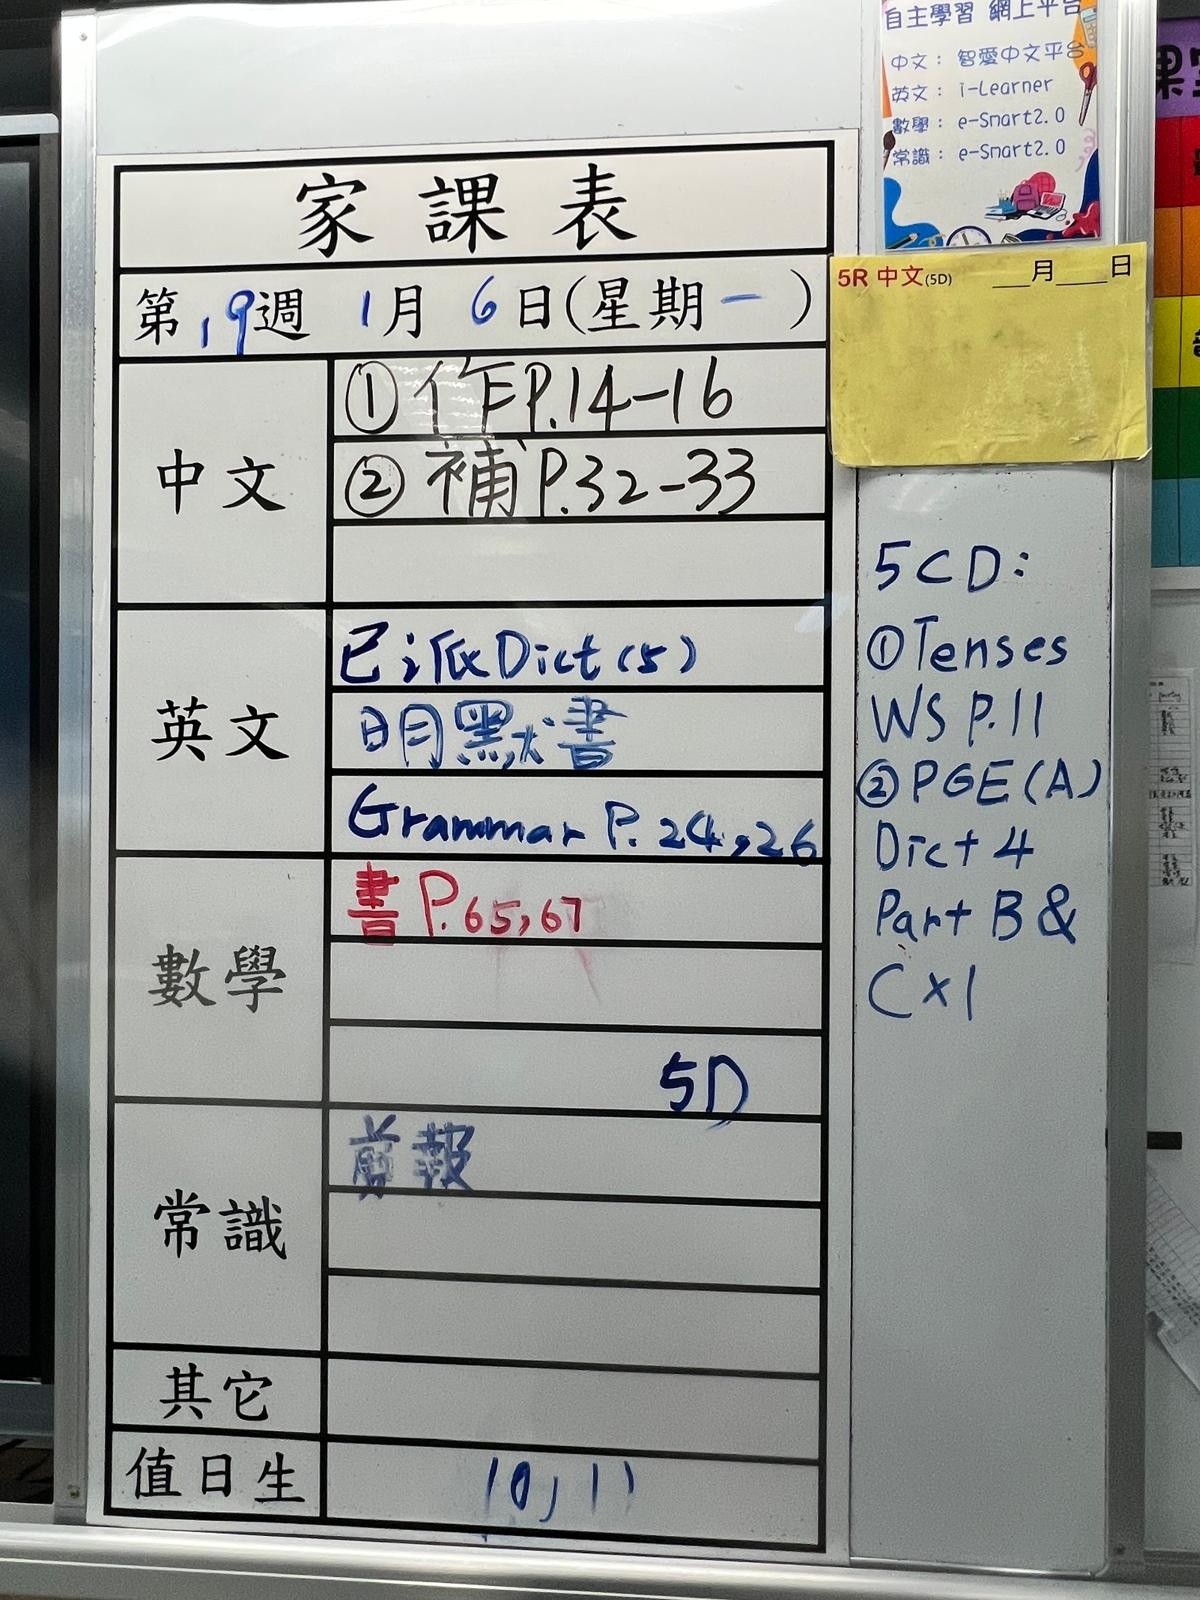 自主學習 網上平台
中文： 智愛中文平台
英文： i-Learner
數學： e-Smart2.0
常識： e-Smart2.0
家課表
第19週 1月 6日(星期一)
5R 中文(5D) ___月____日
中文
① 作P.14-16
② 補P.32-33
英文
已派Dict(5)
明默書
Grammar P. 24,26
數學
書P.65,67
5D
常識
剪報
其它
值日生
10,11
5CD:
①Tenses
WS P.11
②PGE(A)
Dict 4
Part B &
C x1